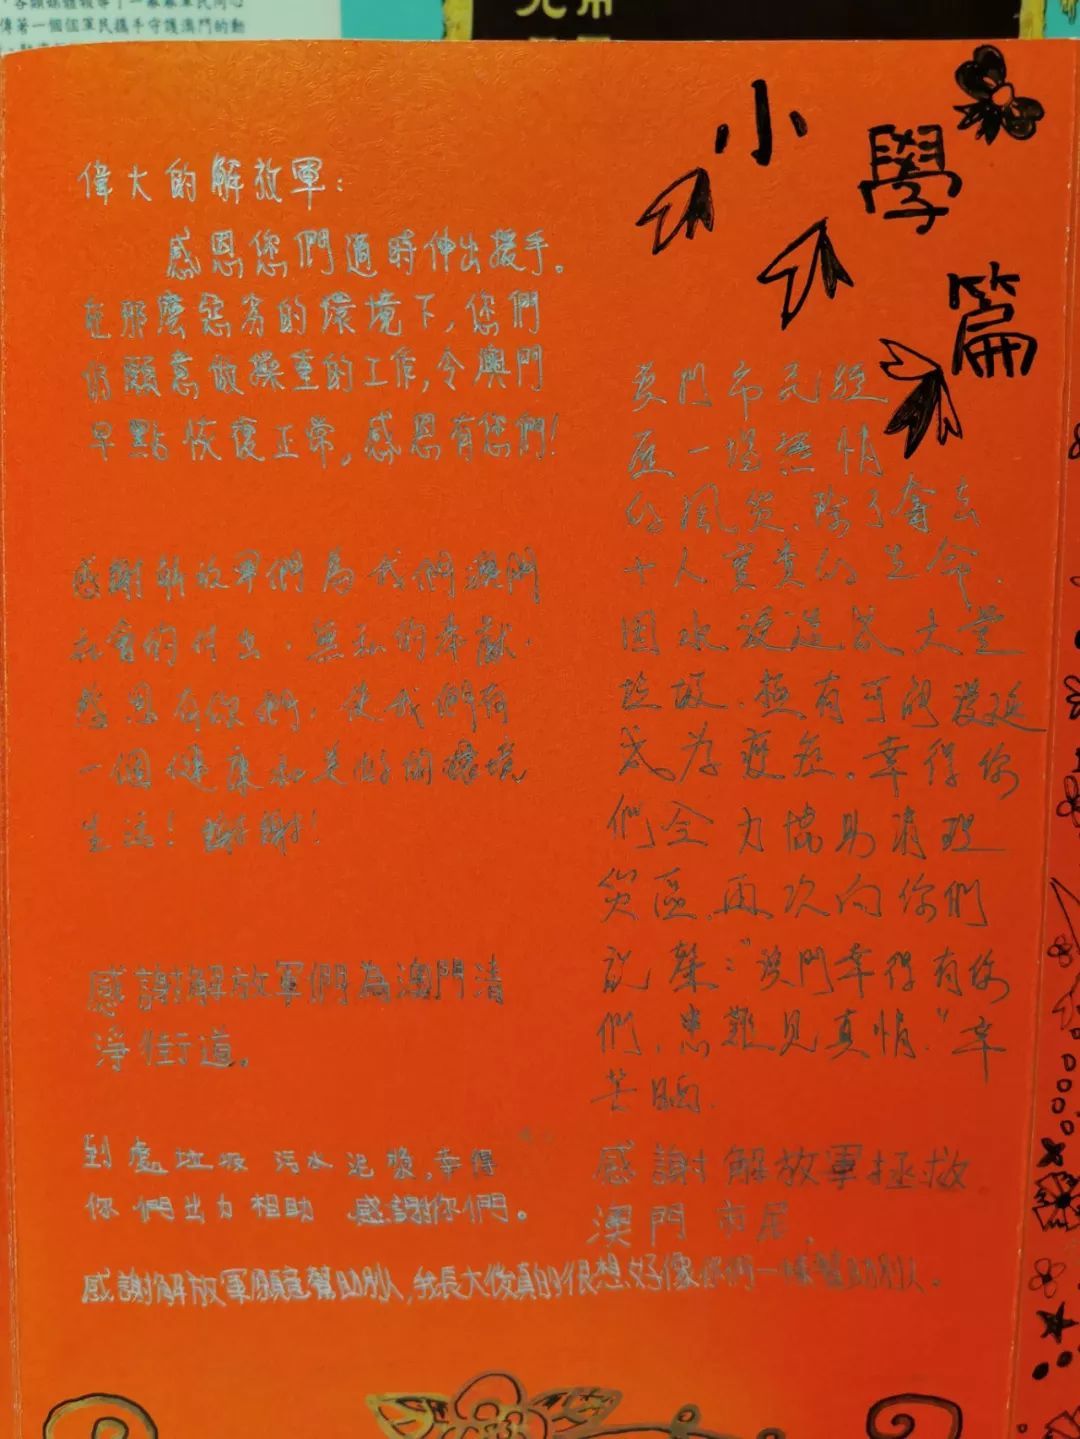 傳著一個個軍民攜手守護澳門的動
小學篇
偉大的解放軍：
感恩您們適時伸出援手。
在那麼惡劣的環境下，您們
仍願意做操重的工作，令澳門
早點恢復正常。感恩有您們！
感謝解放軍們為我們澳門
社會的付出，無私的奉獻，
感恩有你們，使我們有
一個健康和美好的環境
生活！謝謝！
感謝解放軍們為澳門清
淨街道。
到處垃圾 污水泥漿，幸得
你們出力相助 感謝你們。
澳門市民經
歷一場無情
的風災，除了奪去
十人寶貴的生命，
因水浸造成大堂
垃圾，極有可能發延
成為疫症。幸得你
們全力協助清理
災區，再次向你們
說聲："澳門幸得有你
們，患難見真情。"幸
感謝解放軍拯救
澳門市民，
感謝解放軍願意幫助別人，我長大後真的很想好像你們一樣幫助別人。